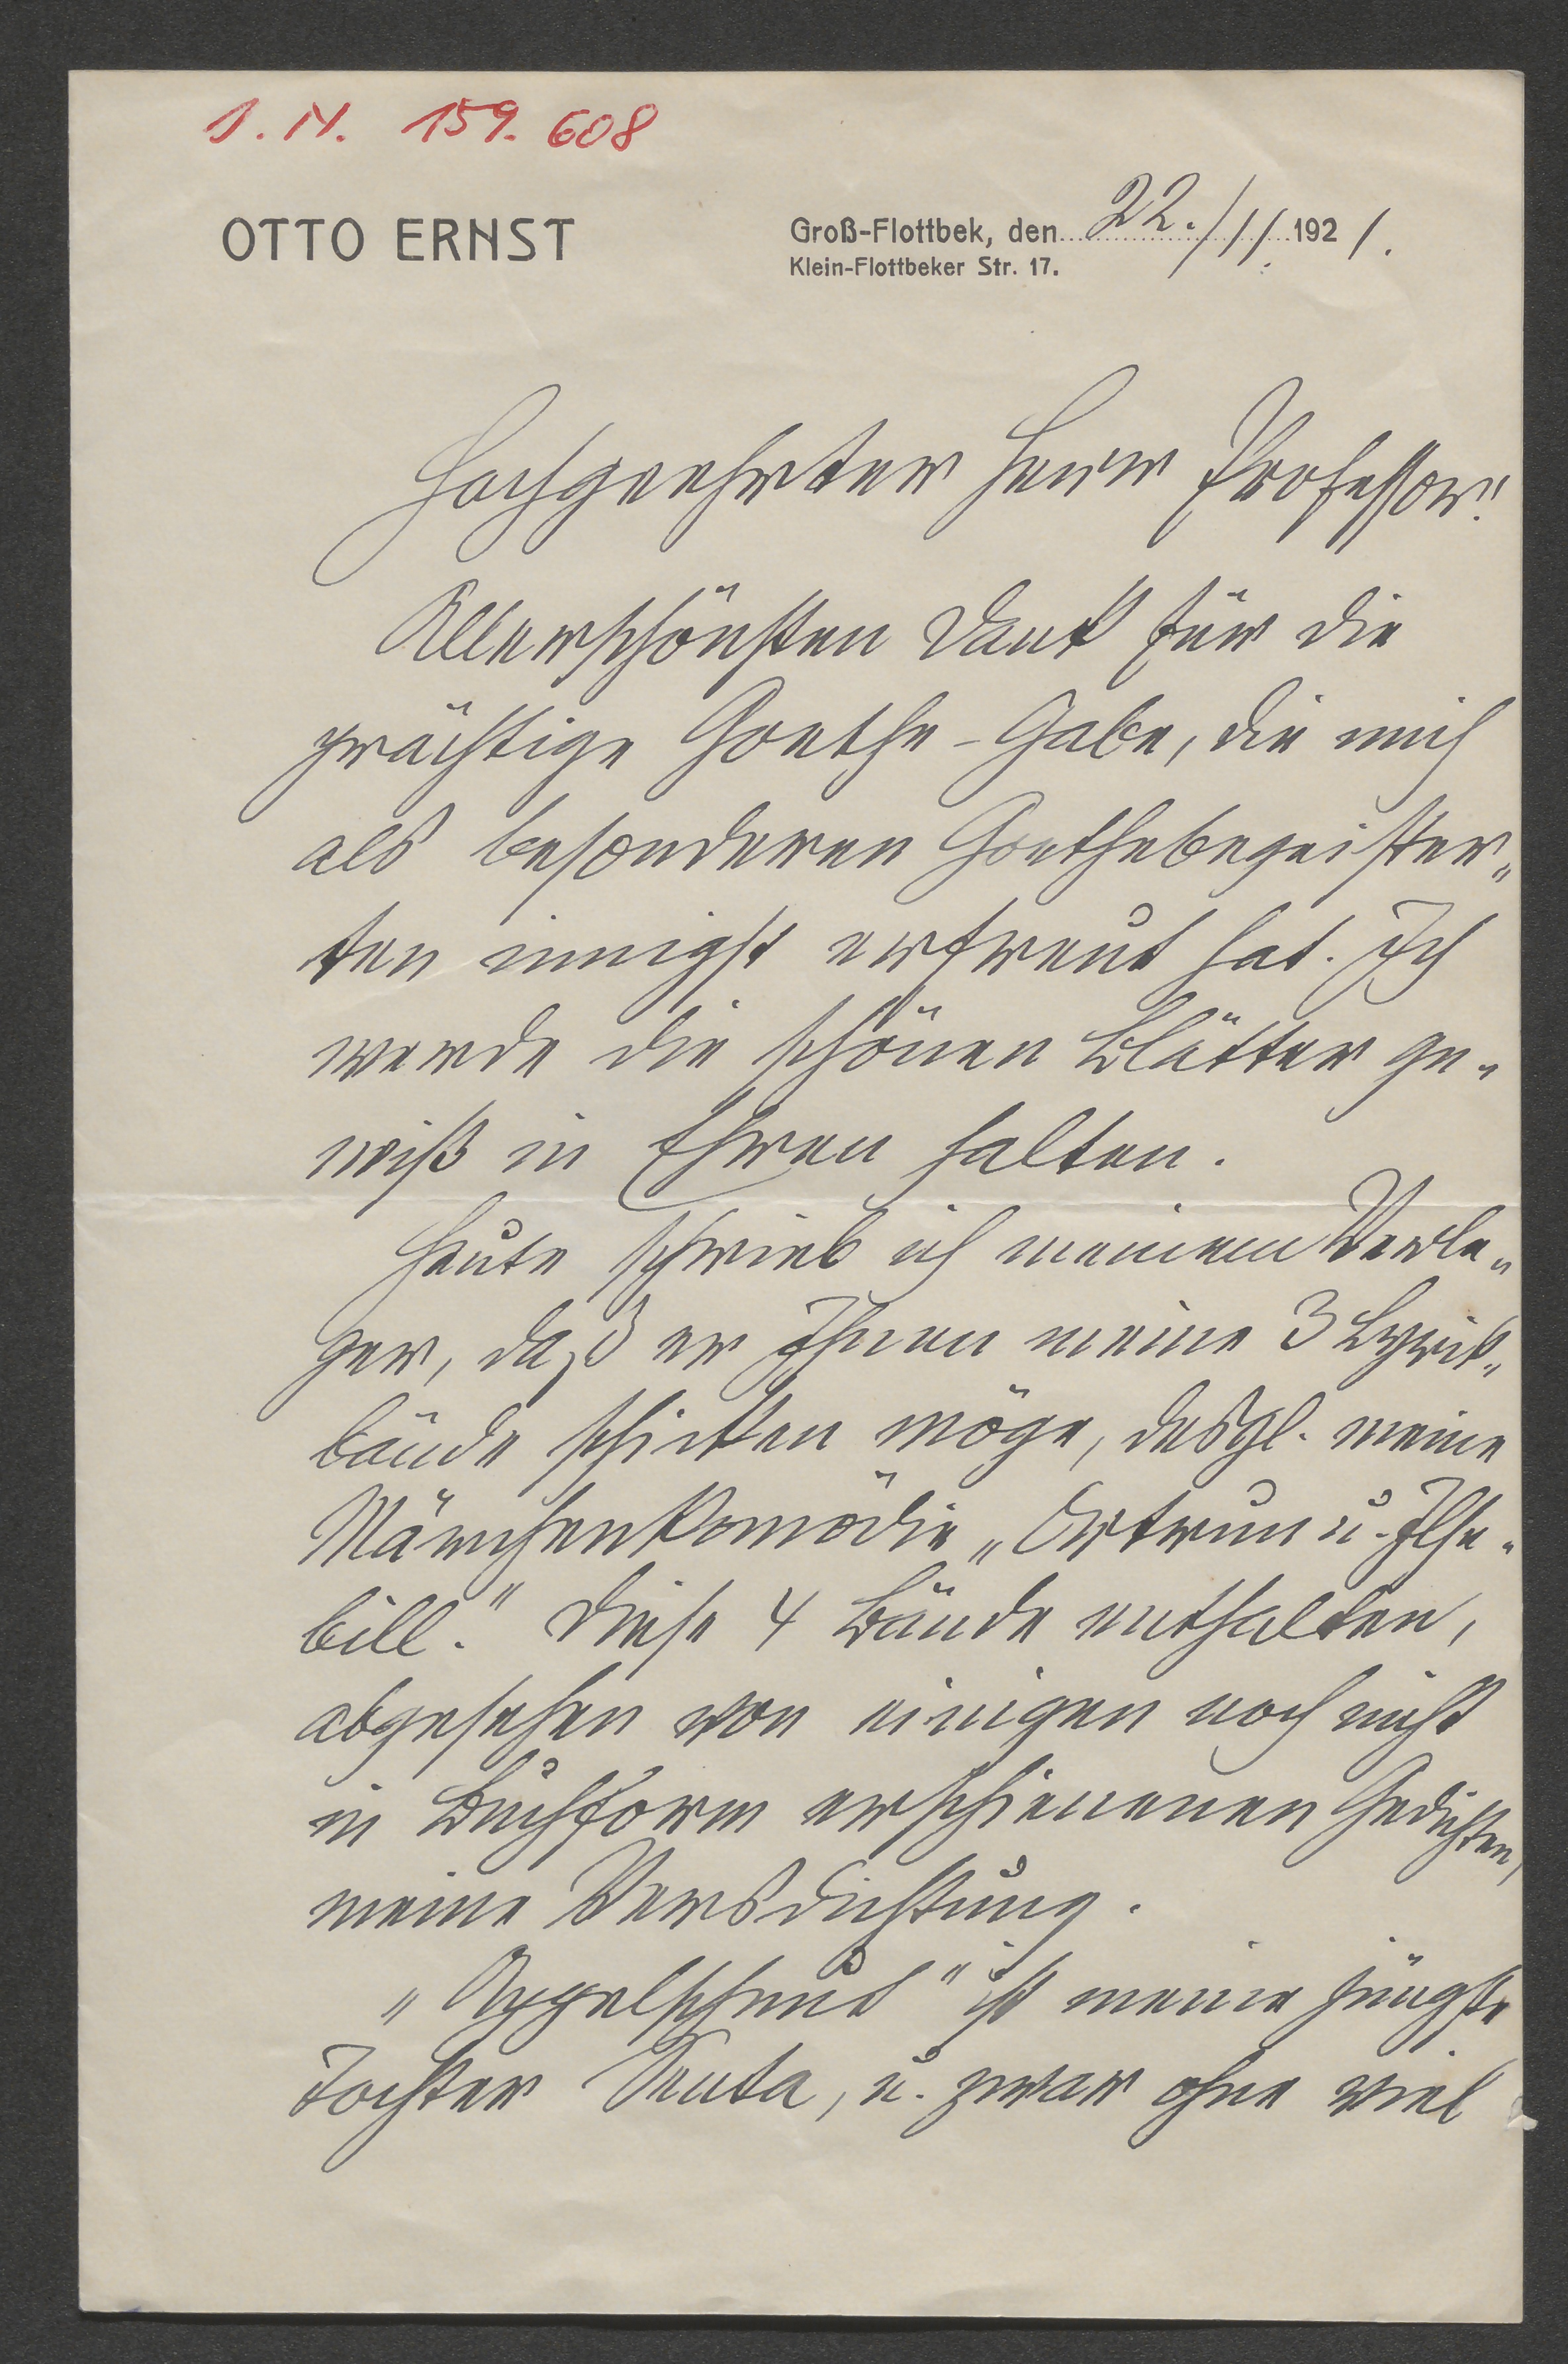 J. N. 159.608
OTTO ERNST
Groß-Flottbek, den 22./11. 1921.
Klein-Flottbeker Str. 17.
Hochgeehrter Herr Professor!
Allerschönsten Dank für die
prächtige Goethe-Gabe, die mich
als besonderen Goethebegeister„
ten innigst erfreut hat. Ich
werde die schönen Blätter ge„
wiß in Ehren halten.
Heute schrieb ich meinem Verle„
ger, daß er Ihnen meine 3 Lyrik„
bände schicken möge, desgl. meine
Märchenkomödie „Ortrun u. Ilse„
bill." Diese 4 Bände enthalten,
abgesehen von einigen noch nicht
in Buchform erschienenen Gedichten,
meine Versdichtung.
„Appelschnut" ist meine jüngste
Tochter Senta, u. zwar ohne viel